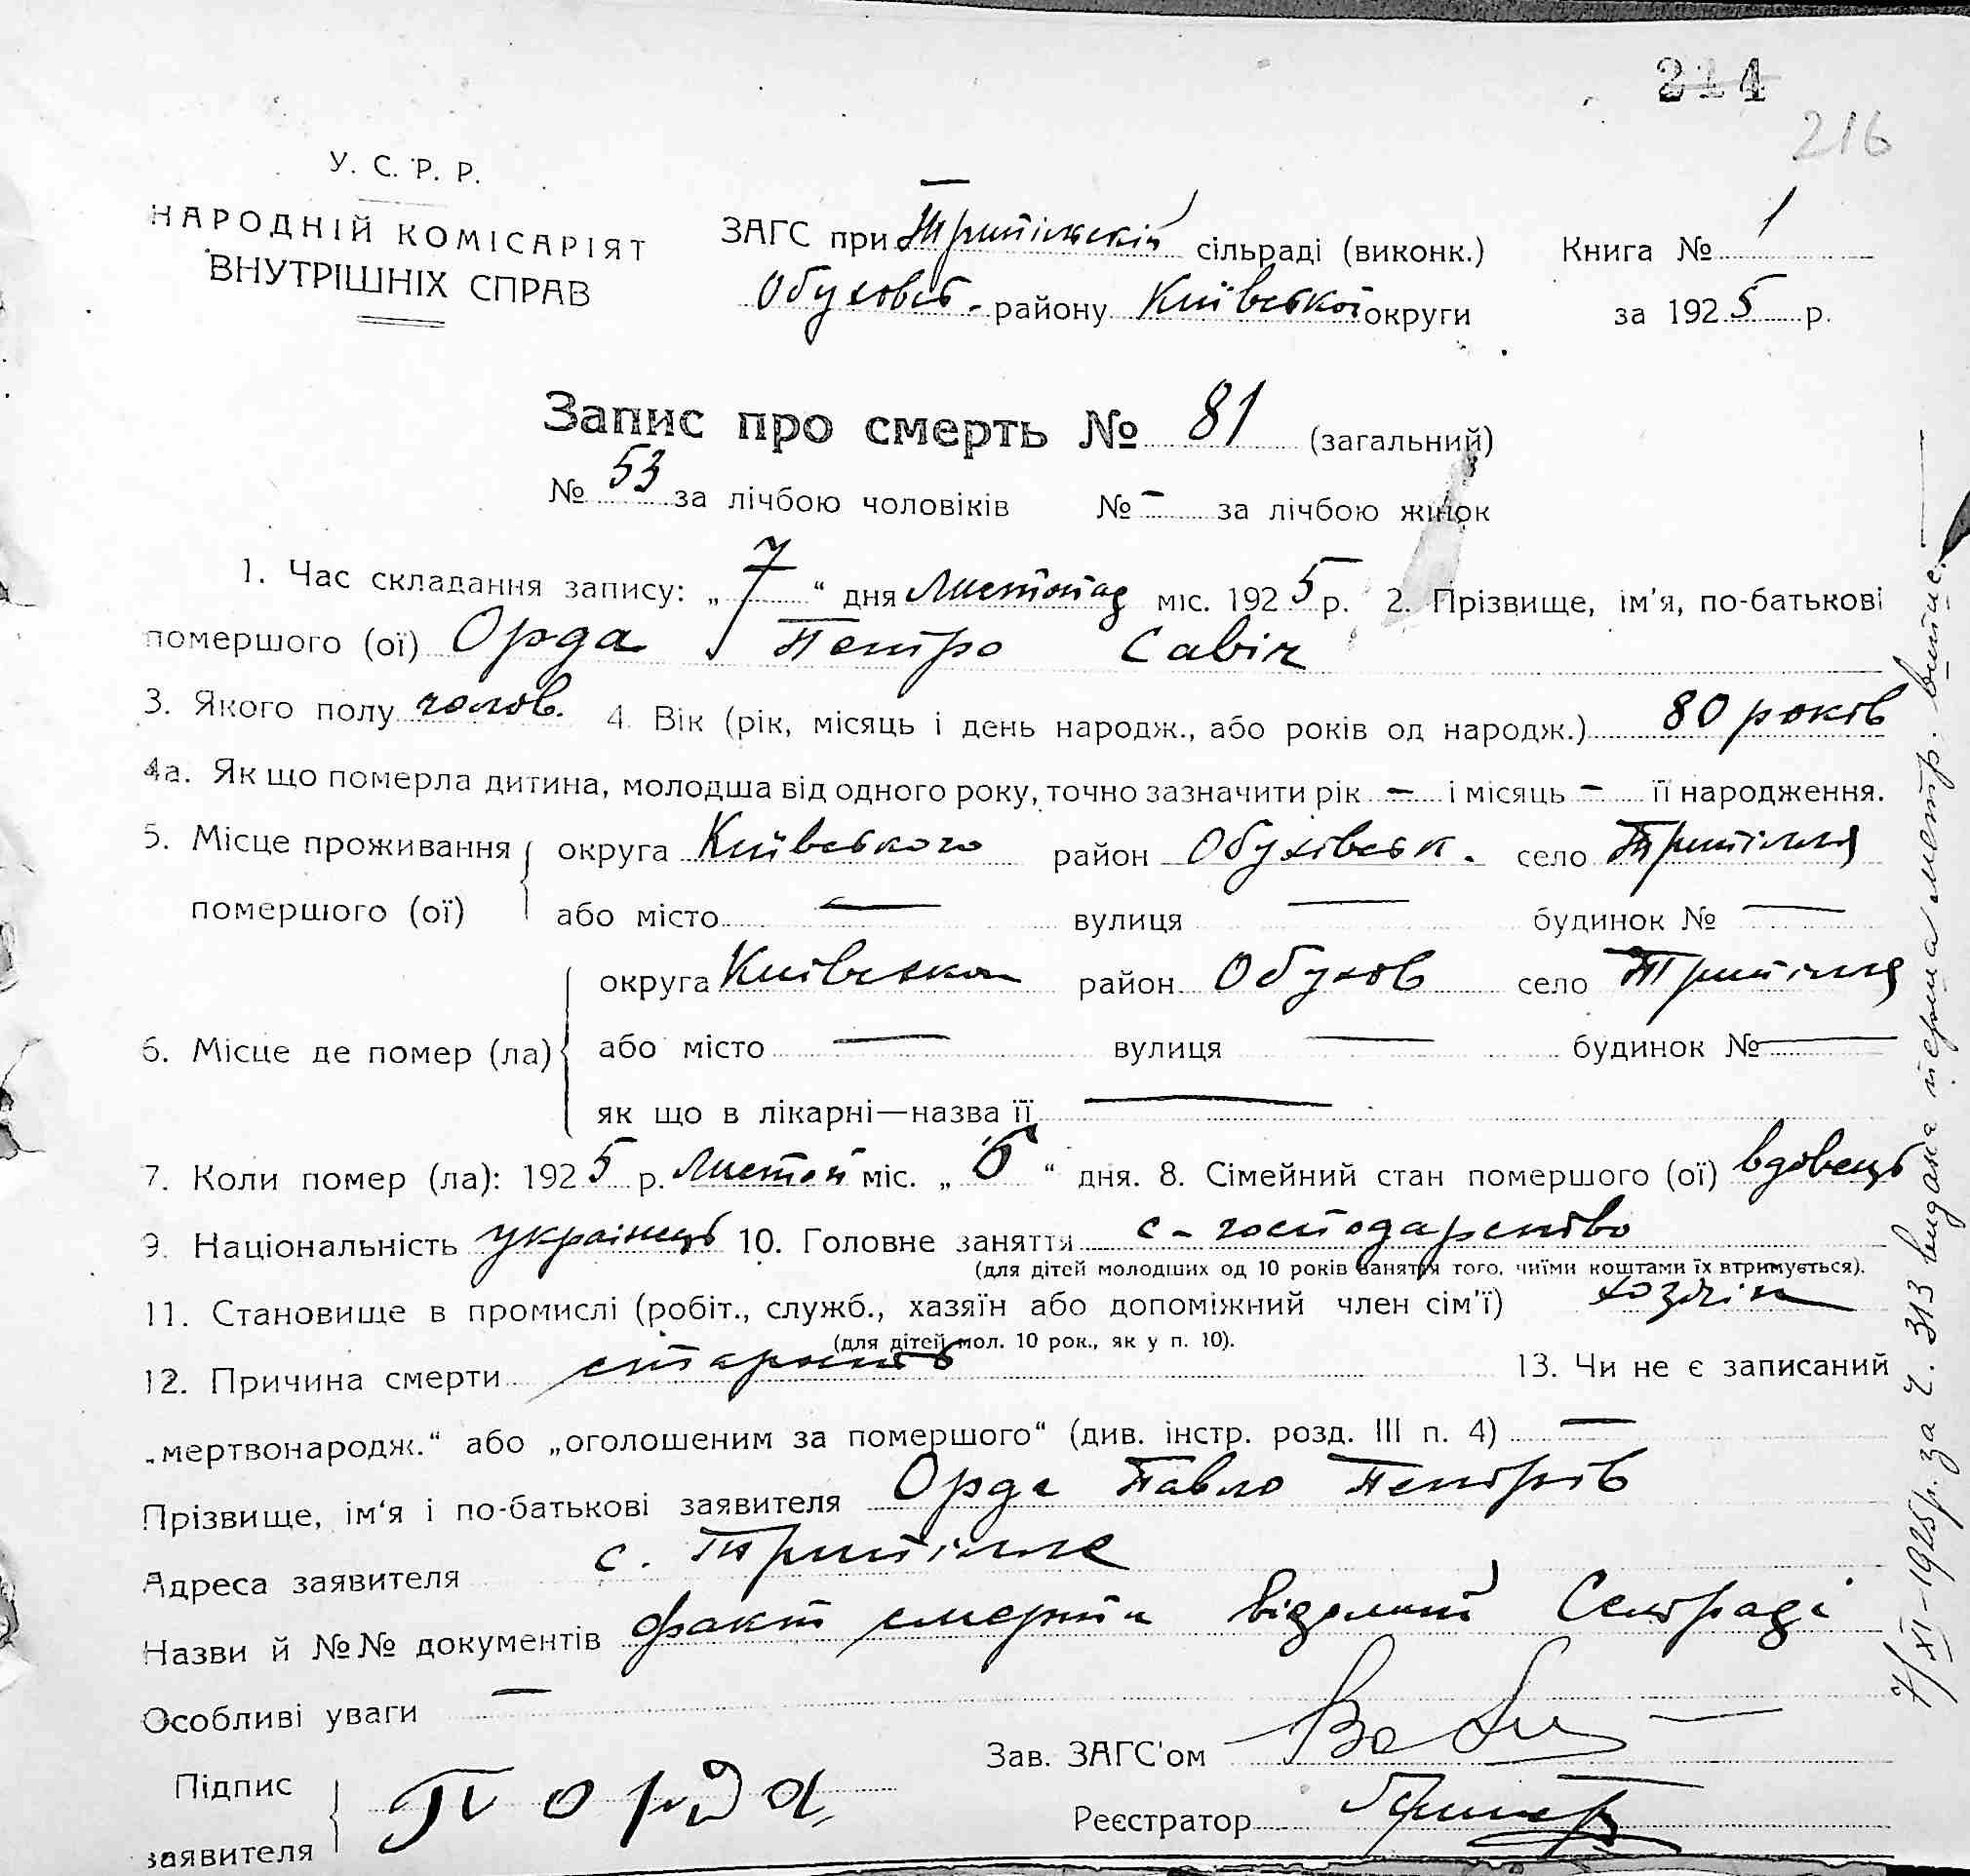 214
216
У. С. Р. Р.
НАРОДНІЙ КОМІСАРІЯТ
ВНУТРІШНІХ СПРАВ
ЗАГС при Трипільскій сільраді (виконк.)
Обуховсь. району Київської округи
Книга № 1
за 1925 р.
Запис про смерть № 81 (загальний)
№ 53 за лічбою чоловіків № – за лічбою жінок
1. Час складання запису: „7“ дня Листопад міс. 1925 р. 2. Прізвище, ім'я, по-батькові
помершого (ої) Орда Петро Савін
3. Якого полу чолов. 4. Вік (рік, місяць і день народж., або років од народж.) 80 років
4а. Як що померла дитина, молодша від одного року, точно зазначити рік – і місяць – її народження.
5. Місце проживання помершого (ої) округа Київського район Обухівськ. село Трипілля
або місто — вулиця — будинок № —
6. Місце де помер (ла) округа Київська район Обухов село Трипілля
або місто — вулиця — будинок № —
як що в лікарні—назва її —
7. Коли помер (ла): 1925 р. Листоп міс. „6“ дня. 8. Сімейний стан помершого (ої) вдовець
9. Національність українець 10. Головне заняття с-господарство
(для дітей молодших од 10 років заняття того, чиїми коштами їх втримується).
11. Становище в промислі (робіт., служб., хазяїн або допоміжний член сім'ї) хозяін
(для дітей мол. 10 рок., як у п. 10).
12. Причина смерти старость 13. Чи не є записаний
„мертвонародж.“ або „оголошеним за помершого“ (див. інстр. розд. III п. 4) —
Прізвище, ім'я і по-батькові заявителя Орда Павло Петрів
Адреса заявителя с. Трипілле
Назви й №№ документів факт смерти відомий Сельраді
Особливі уваги —
Зав. ЗАГС'ом
Підпис заявителя П Орда
Реєстратор
7/XI-1925р. за ч. 313 видана перша метр. випис.